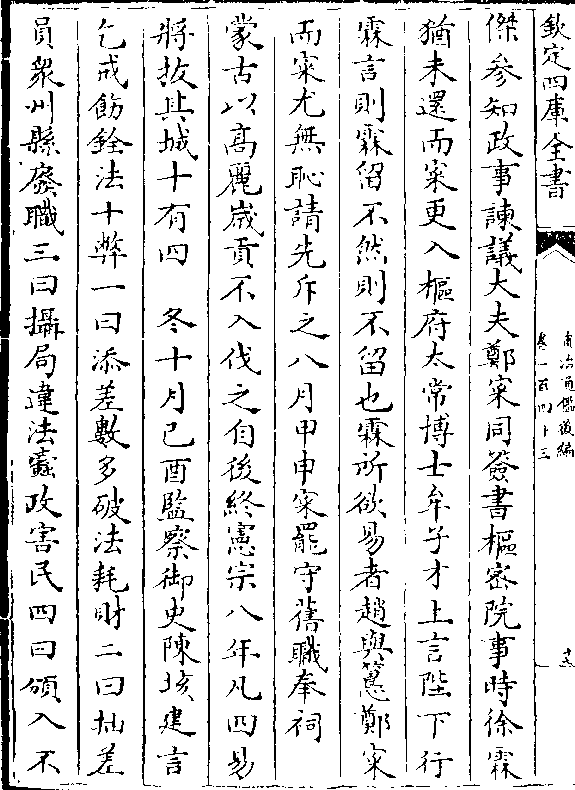 欽定四庫全書
資治通鑑後編
卷一百四十三
十六
傑參知政事諫議大夫鄭寀同簽書樞密院事時徐霖
猶未還而寀更入樞府太常博士牟子才上言陛下行
霖言則霖留不然則不留也霖所欲易者趙與𥲅鄭寀
而寀尤無恥請先斥之八月甲申寀罷守舊職奉祠
蒙古以高麗嵗貢不入伐之自後終憲宗八年凡四易
將拔其城十有四　冬十月己酉監察御史陳垓建言
乞戒飭銓法十弊一曰添差數多破法耗財二曰抽差
員衆州縣廢職三曰攝局違法蠧政害民四曰頒入不